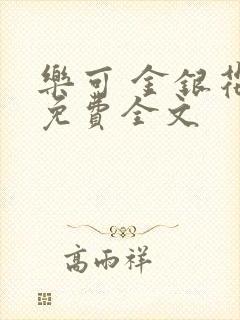 樂可 金銀花
免費全文
高雨祥